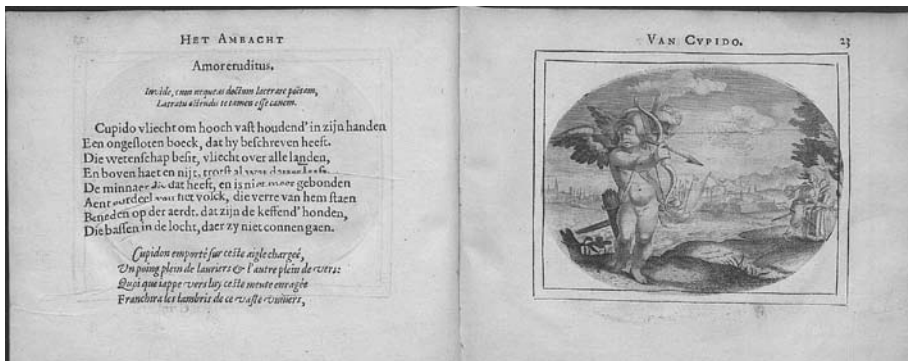 HET AMBACHT
Amor eruditus.
Invide, cum nequeas doctum lacerare poëtam,
Latratu ostendis te tamen esse canem.
Cupido vliecht om hooch vast houdend' in zijn handen
Een ongesloten boeck, dat hy beschreven heeft.
Die wetenschap besit, vliecht over alle landen,
En boven haet en nijt, trotst al wat
De minnaer die dat heeft, en is niet meer gebonden
Aent oordeel van het volck, die verre van hem staen
Beneden op der aerdt. dat zijn de keffend' honden,
Die bassen in de locht, daer zy niet connen gaen.
Cupidon emporté sur ceste aigle chargeé,
Un poing plein de lauriers & l'autre plein de vers:
Quoi que iappe vers luy ceste meute enragée
Franchira les lambris de ce vaste univers,
VAN CVPIDO.
23